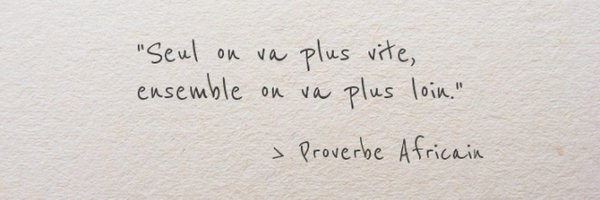 "Seul on va plus vite,
ensemble on va plus loin."
> Proverbe Africain